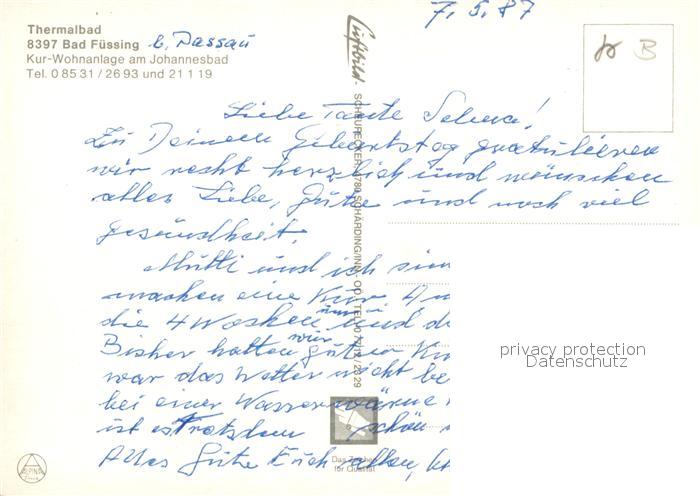 Thermalbad
8397 Bad Füssing b. Passau
Kur-Wohnanlage am Johannesbad
Tel. 0 85 31 / 26 93 und 21 1 19
7. 5. 87
Luftbild
B
SCHEURECKER 4780 SCHÄRDING/INN OÖ TEL 07712 / 23 29
Liebe Tante !
Zu Deinem Geburtstag gratulieren
wir recht herzlich und wünschen
alles Liebe, Gute und noch viel
Gesundheit.
Mutti und ich sin
machen eine Kur.
die 4 Wochen um und d
Bisher hatten wir
war das Wetter nicht be
bei einer Wasserwärme
ist es trotzdem schön
Alles Gute Euch allen,
Das Zeichen
für Qualität
ALPINA
privacy protection
Datenschutz